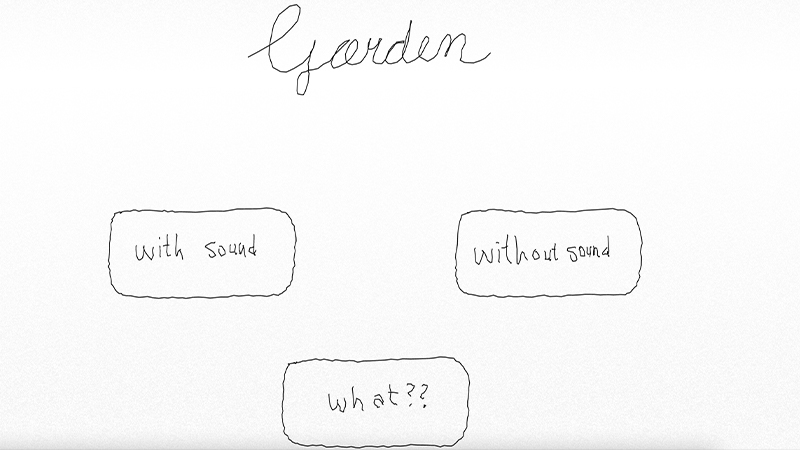 Garden
with sound
without sound
what??